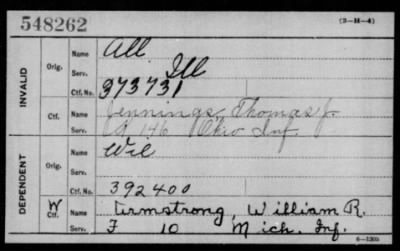 548262
(3-H-4)
INVALID
Orig.
Name All
Serv. Ill
Ctf. No. 373731
Ctf.
Name Jennings, Thomas J.
Serv. 146 Ohio Inf.
DEPENDENT
Orig.
Name Wil
Serv.
Ctf. No. 392400
W
Ctf.
Name Armstrong, William R.
Serv. F 10 Mich. Inf.